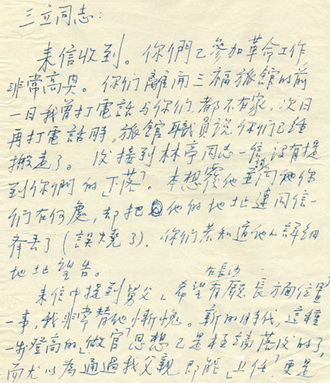 三立同志:
来信收到。你們已參加革命工作
非常高興。你們離開三福旅館的前
一日我曾打電話与你们,都不在家,次日
再打電話時,旅館職員說你们已経
搬走了。後接到林亭同志一信,没有提
到你們的下落。本想覆他並問他你
们在何處,却把他的地址連同信一
齊丟了(誤燒了)。你們若知道他的詳細
地址望告。
来信中提到舅父"希望在長沙有厅長方面位置"
一事,我非常替他慚愧。新的時代,這種
一步登高的"做官"思想已是極端落後的了,
而尤以為通過我父親即能"上任",更是